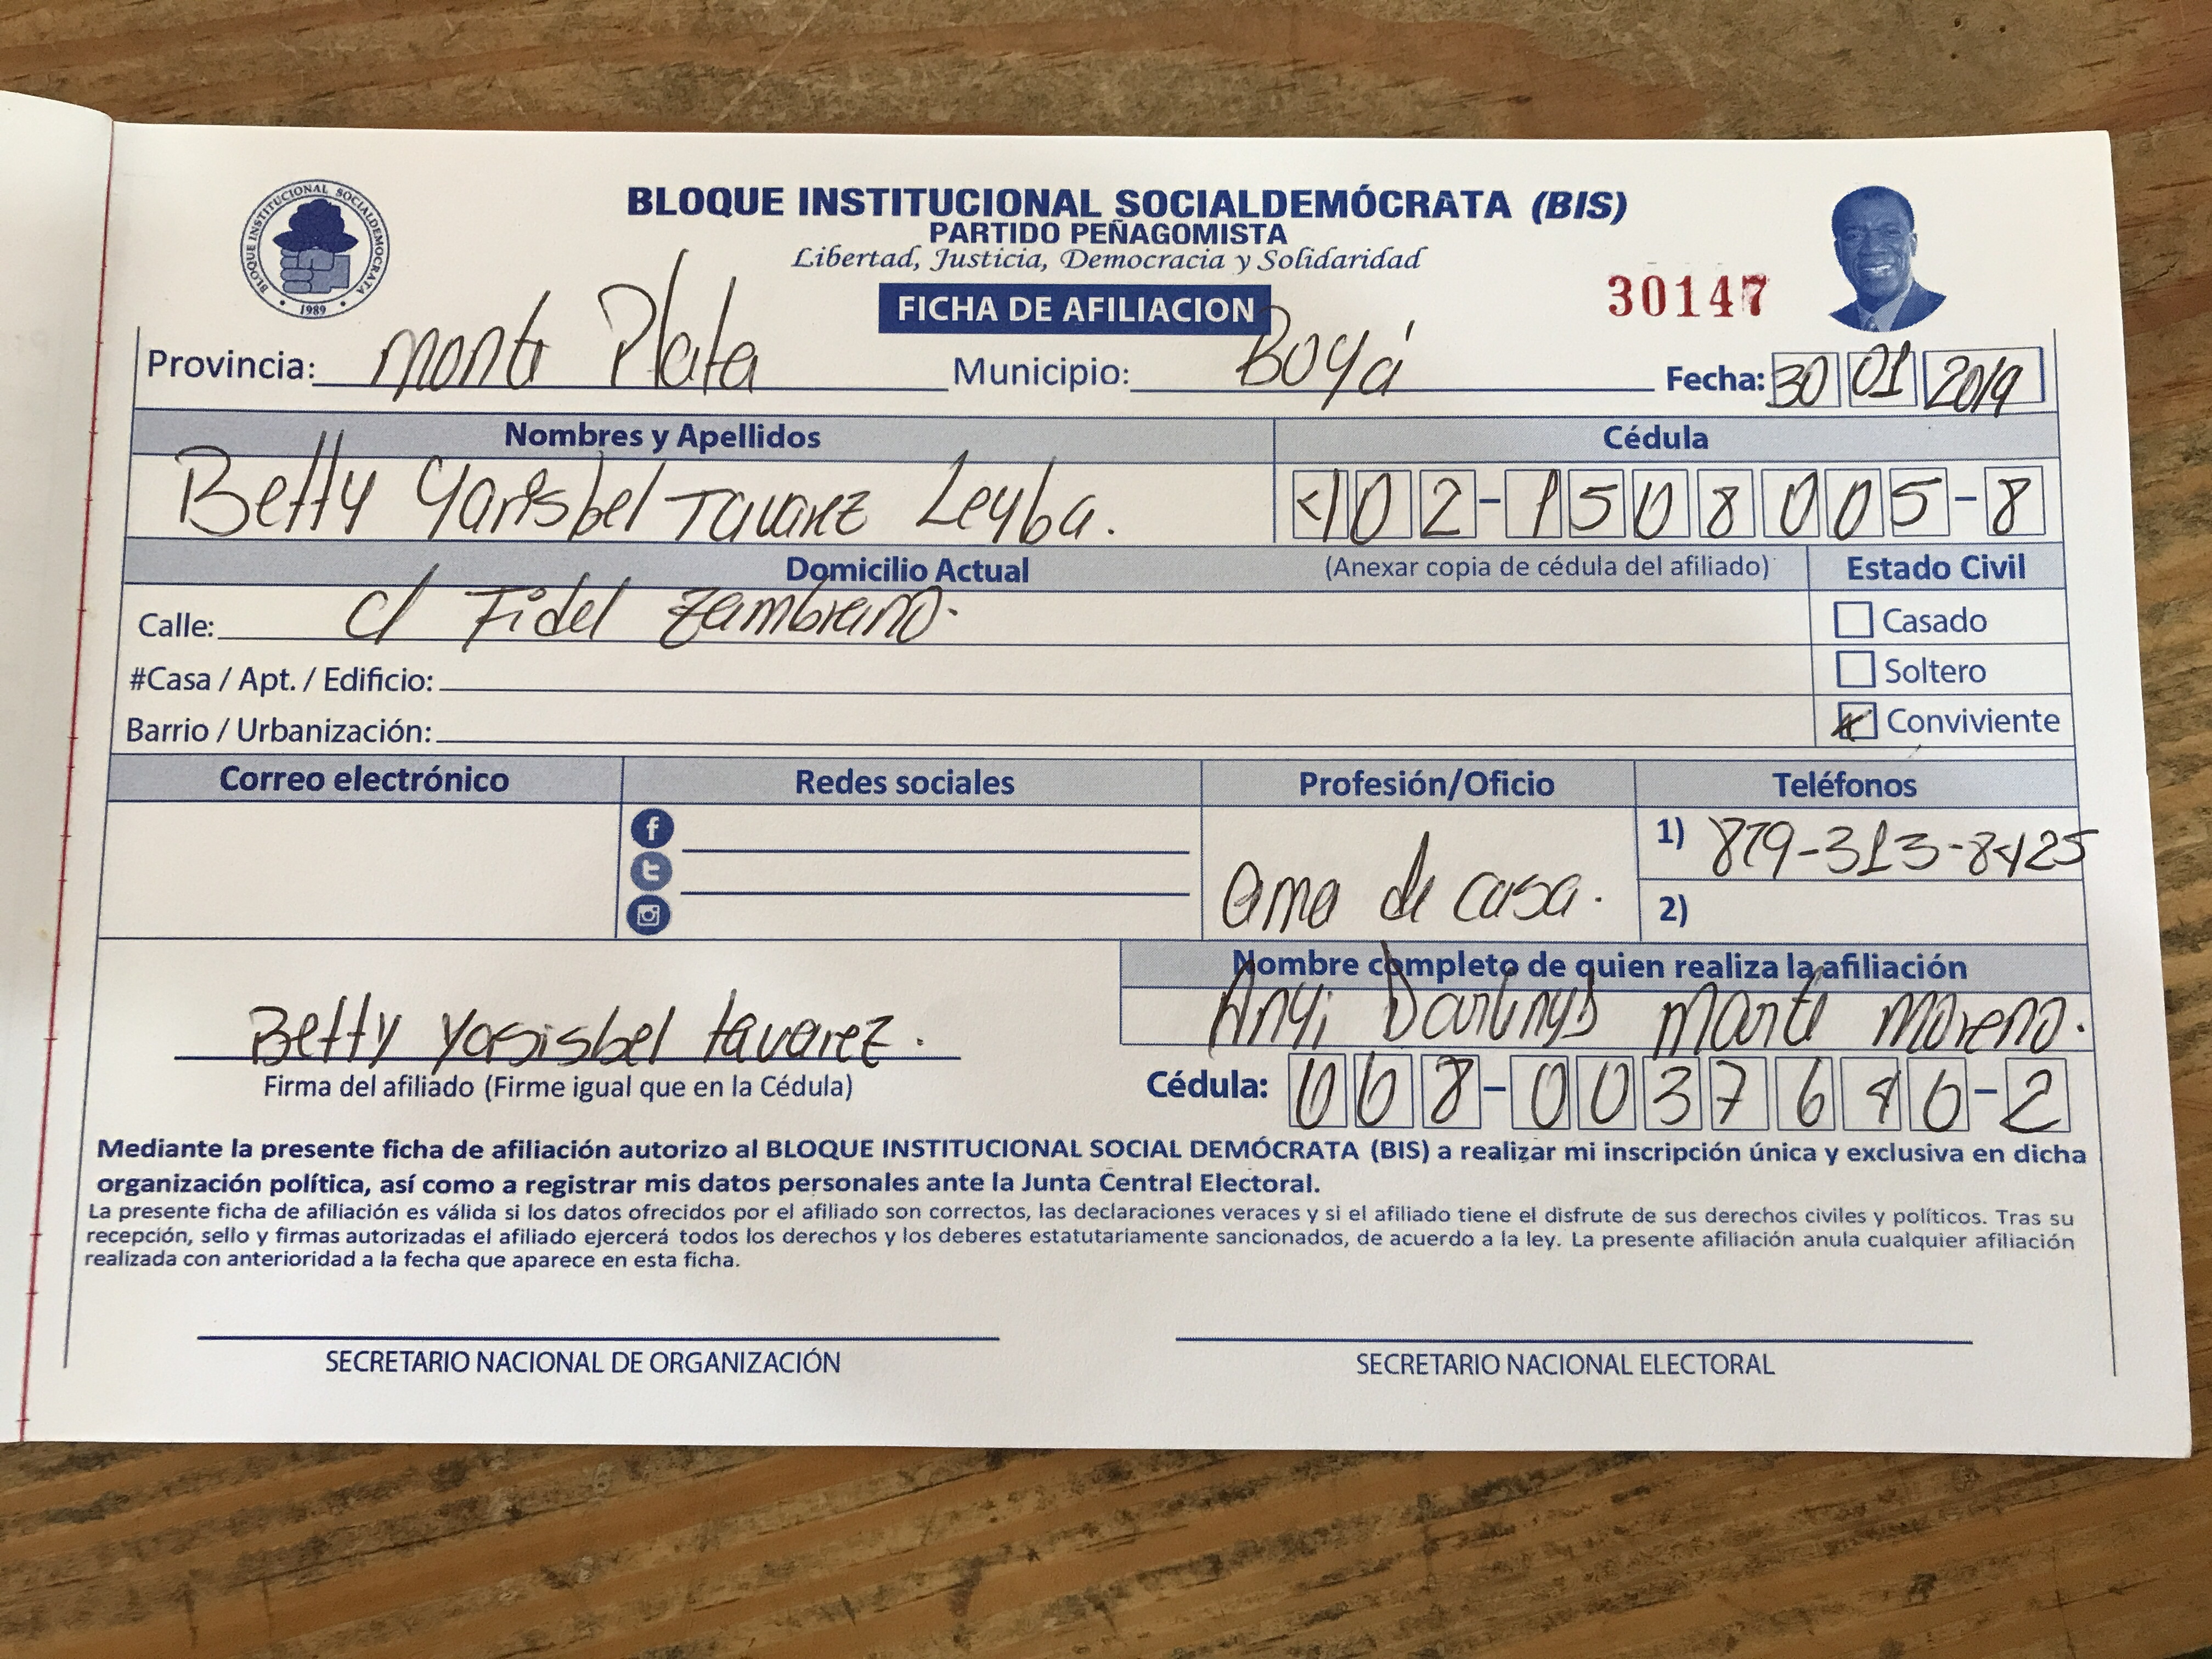 BLOQUE INSTITUCIONAL SOCIALDEMOCRATA
1989
BLOQUE INSTITUCIONAL SOCIALDEMÓCRATA (BIS)
PARTIDO PEÑAGOMISTA
Libertad, Justicia, Democracia y Solidaridad
FICHA DE AFILIACION
30147
Provincia: Monte Plata Municipio: Boyá Fecha: 30 01 2019
Nombres y Apellidos Cédula
Betty Yarisbel Tavarez Leyba. 402-1508005-8
Domicilio Actual (Anexar copia de cédula del afiliado) Estado Civil
Calle: c/ Fidel Zambrano. Casado
#Casa / Apt. / Edificio: Soltero
Barrio / Urbanización: Conviviente
Correo electrónico Redes sociales Profesión/Oficio Teléfonos
1) 829-313-8425
ama de casa.
2)
Nombre completo de quien realiza la afiliación
Anyi Darlinys Marte Moreno.
Betty Yasisbel tavarez.
Firma del afiliado (Firme igual que en la Cédula) Cédula: 068-0037646-2
Mediante la presente ficha de afiliación autorizo al BLOQUE INSTITUCIONAL SOCIAL DEMÓCRATA (BIS) a realizar mi inscripción única y exclusiva en dicha
organización política, así como a registrar mis datos personales ante la Junta Central Electoral.
La presente ficha de afiliación es válida si los datos ofrecidos por el afiliado son correctos, las declaraciones veraces y si el afiliado tiene el disfrute de sus derechos civiles y políticos. Tras su
recepción, sello y firmas autorizadas el afiliado ejercerá todos los derechos y los deberes estatutariamente sancionados, de acuerdo a la ley. La presente afiliación anula cualquier afiliación
realizada con anterioridad a la fecha que aparece en esta ficha.
SECRETARIO NACIONAL DE ORGANIZACIÓN SECRETARIO NACIONAL ELECTORAL